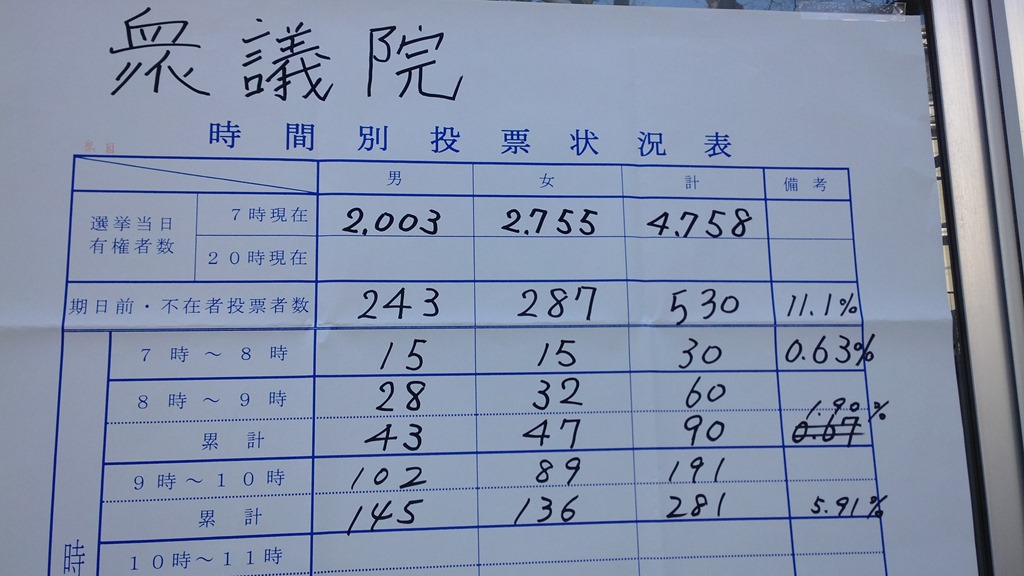 衆議院
時間別投票状況表
男 女 計 備考
選挙当日有権者数 7時現在 2.003 2.755 4.758
20時現在
期日前・不在者投票者数 243 287 530 11.1%
7時～8時 15 15 30 0.63%
8時～9時 28 32 60
累計 43 47 90 1.90% 0.67
9時～10時 102 89 191
累計 145 136 281 5.91%
10時～11時
時